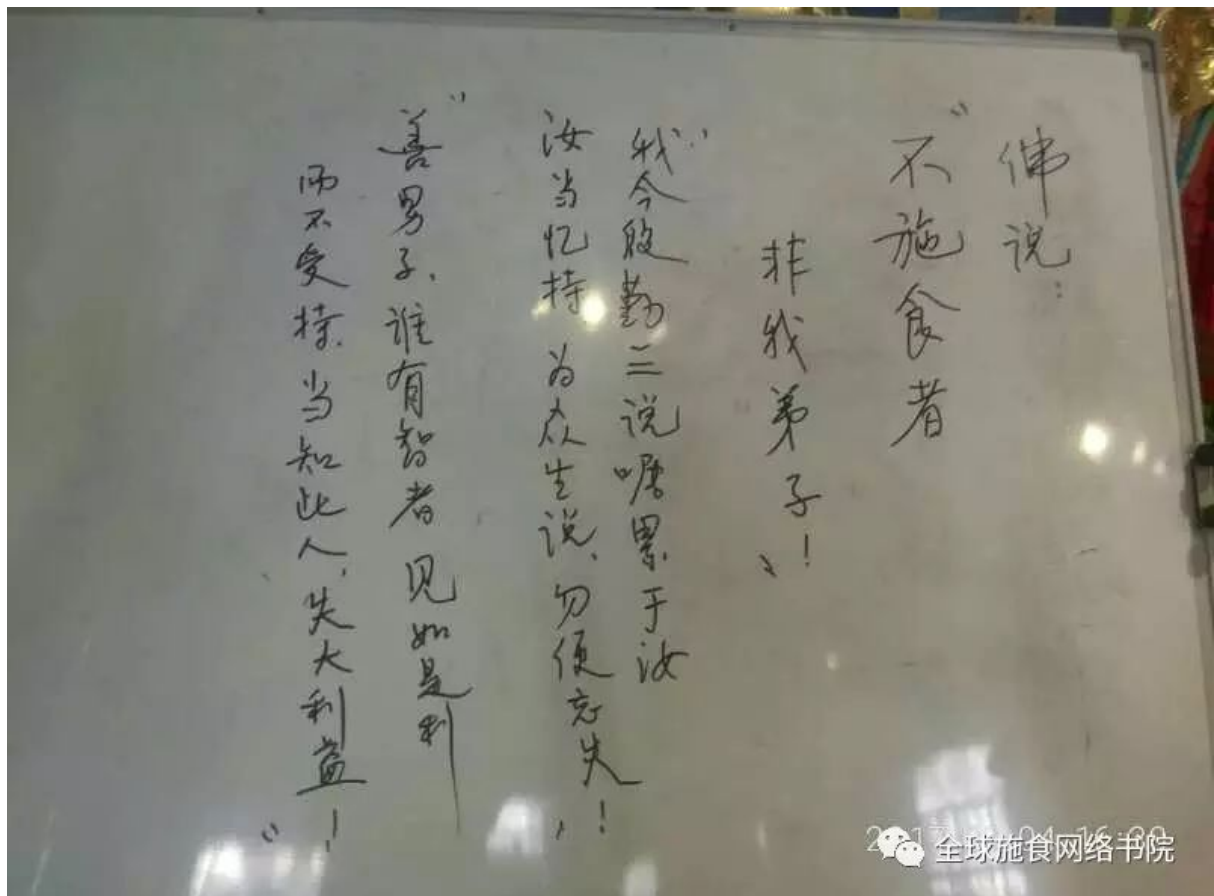 佛说:
"不施食者
非我弟子!"
"我今殷勤三说嘱累于汝
汝当忆持 为众生说、勿便忘失!"
"善男子、谁有智者 见如是利
而不受持、当知此人、失大利益!"
全球施食网络书院